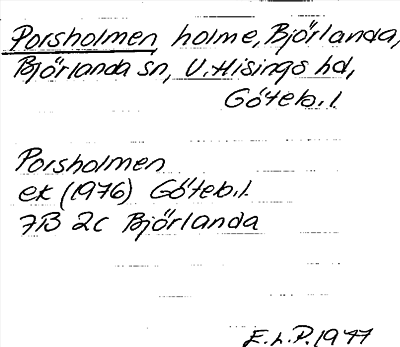 Porsholmen, holme, Björlanda,
Björlanda sn, V. Hisings hd,
Göteb. l.
Porsholmen
ek (1976) Göteb. l.
7B 2c Björlanda
E.L.P. 1977